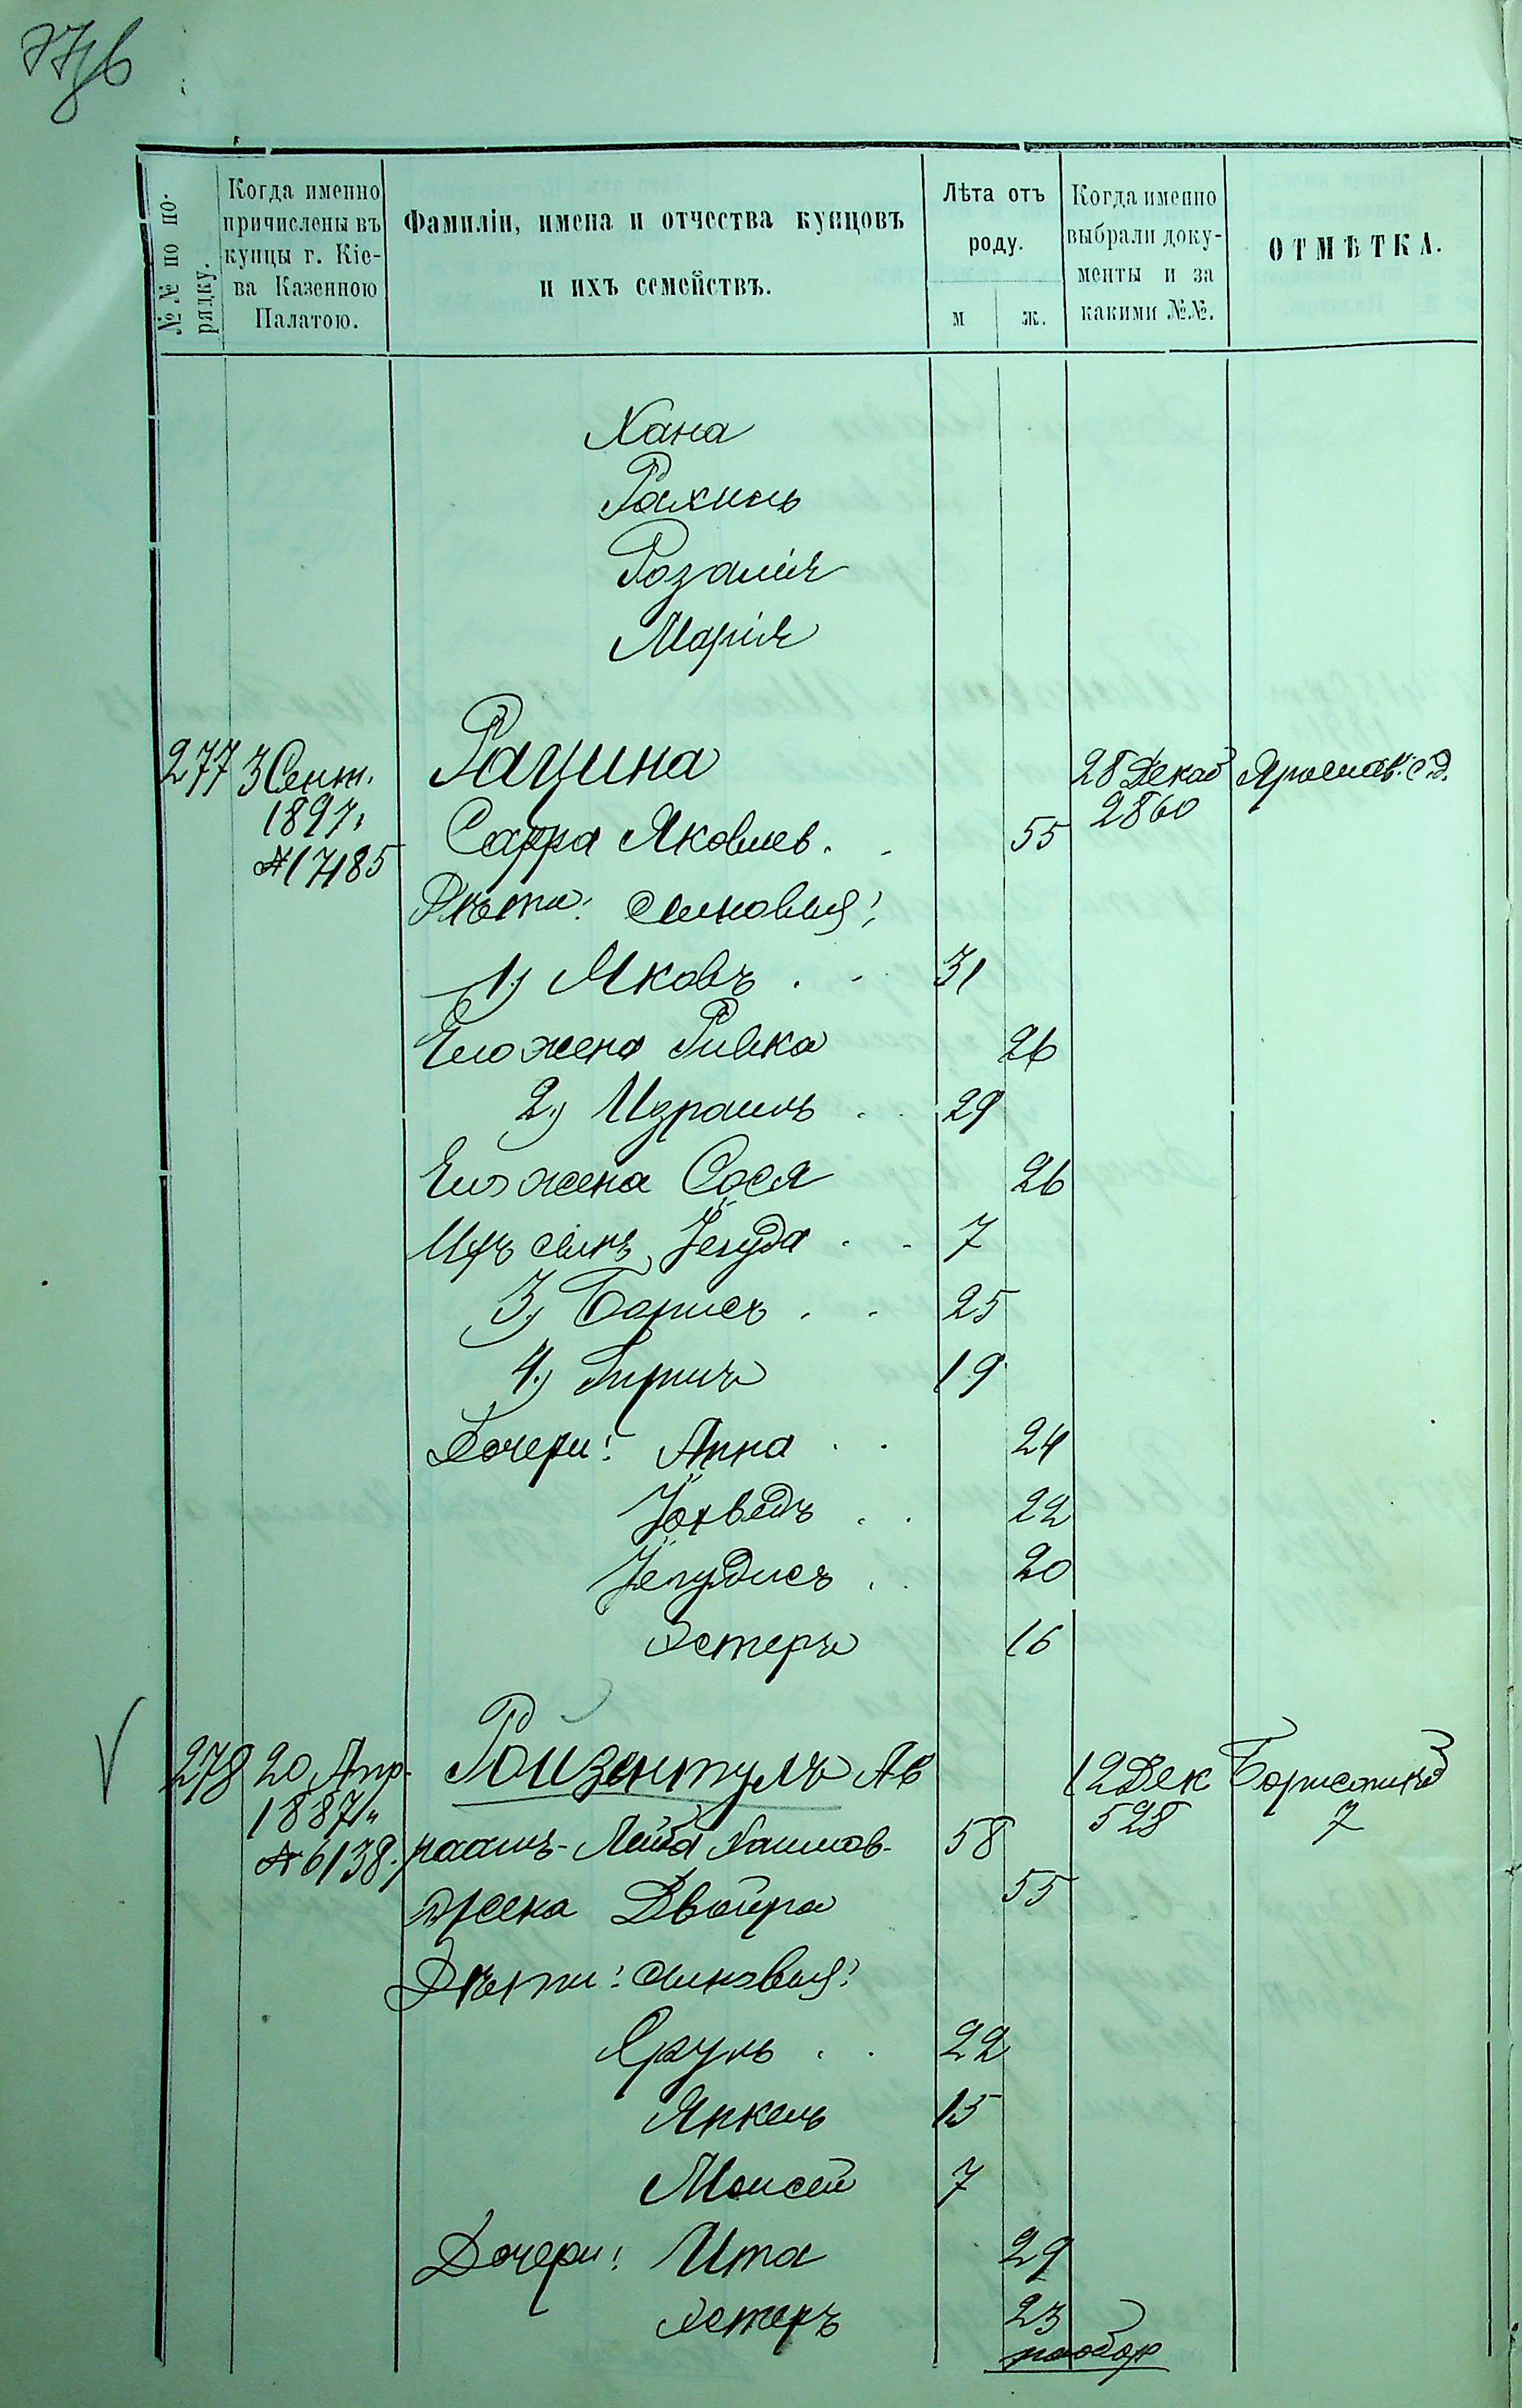 №№ по по-
рядку.
Когда именно
причислены въ
купцы г. Кіе-
ва Казенною
Палатою.
Фамиліи, имена и отчества купцовъ
и ихъ семействъ.
Лѣта отъ
роду.
м ж.
Когда именно
выбрали доку-
менты и за
какими №№.
ОТМѢТКА.
Хана
Рахиль
Розалія
Марія
277 3 Сент. Рацина 28 Декаб Ярослав. с.д.
1897 2860
№ 17185 Сарра Яковлев. 55
Дѣти: сыновья:
1) Яковъ 31
Его жена Ривка 26
2) Израиль 29
Его жена Сося 26
Ихъ сынъ Іегуда 7
3) Борисъ 25
4) Гиршъ 19
Дочери: Анна 24
Іохведъ 22
Іегудисъ 20
Эстеръ 16
278 20 Апр. Ройзентулъ Ав 12 Дек
1887 528 7
№ 6138. раамъ-Лейба Хаимов. 58
жена Двойра 55
Дѣти: сыновья:
Сруль 22
Янкель 15
Моисей 7
Дочери: Ита 29
Эстеръ 23